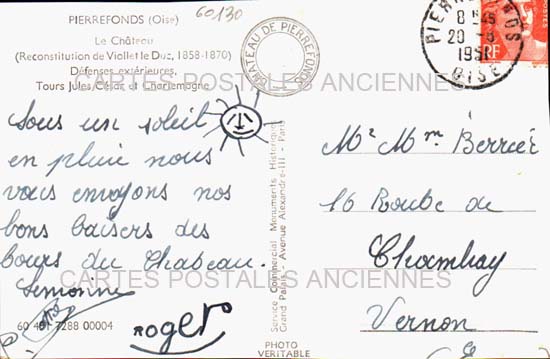 PIERREFONDS (Oise)
60130
Le Château
(Reconstitution de Viollet le Duc, 1858-1870)
Défenses extérieures,
Tours Jules César et Charlemagne
CHÂTEAU DE PIERREFONDS
8 H 45
20 -8
1951
OISE
RF
CARTES POSTALES ANCIENNES
Sous un soleil
en pluie nous
vous envoyons nos
bons baisers des
tours du Chateau.
Simonne
Roger
60 491 7288 00004
Service Commercial Monuments Historiques
Grand Palais - Avenue Alexandre-III - Paris
PHOTO
VERITABLE
Mr Mme Berrier
16 Route de
Chambay
Vernon
CARTES POSTALES ANCIENNES